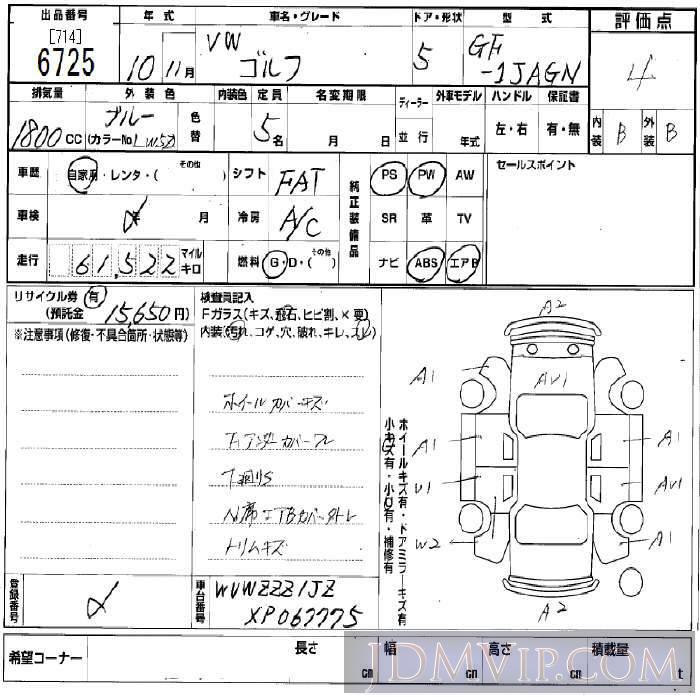 出品番号 年式 車名・グレード ドア・形状 型式 評価点
[714]
6725 10 11月 VW ゴルフ 5 GF-1JAGN 4
排気量 外装色 内装色 定員 名変期限 ディーラー 外車モデル ハンドル 保証書
1800CC ブルー (カラーNo LW5Z) 色替 5名 月 日 並行 年式 左・右 有・無 内装 B 外装 B
車歴 自家用・レンタ・( その他 ) シフト FAT 純正装備品 PS PW AW セールスポイント
車検 年 月 冷房 A/C SR 革 TV
走行 61,522 マイル キロ 燃料 G・D・( その他 ) ナビ ABS エアB
リサイクル券 有
(預託金 15,650円)
※注意事項(修復・不具合箇所・状態等)
検査員記入
Fガラス(キズ、飛石、ヒビ割、×要)
内装(汚れ、コゲ、穴、破れ、キレ、スレ)
ホイールカバーキズ
下回りS
トリムキズ
ホイールキズ有・ドアミラーキズ有
小キズ有・小U有・補修有
A2
A1 AV1
A1 A1
U1 AV1
W2 A1
A2
登録番号 車台番号 WVWZZZ1JZ
XP067775
希望コーナー 長さ cm 幅 cm 高さ cm 積載量 t
JDMVIP.COM